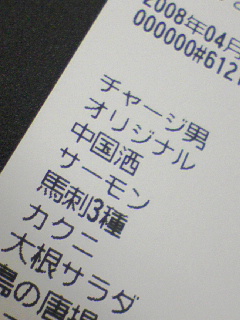 2008年04月
000000#612
チャージ男
オリジナル
中国酒
サーモン
馬刺3種
カクニ
大根サラダ
の唐揚